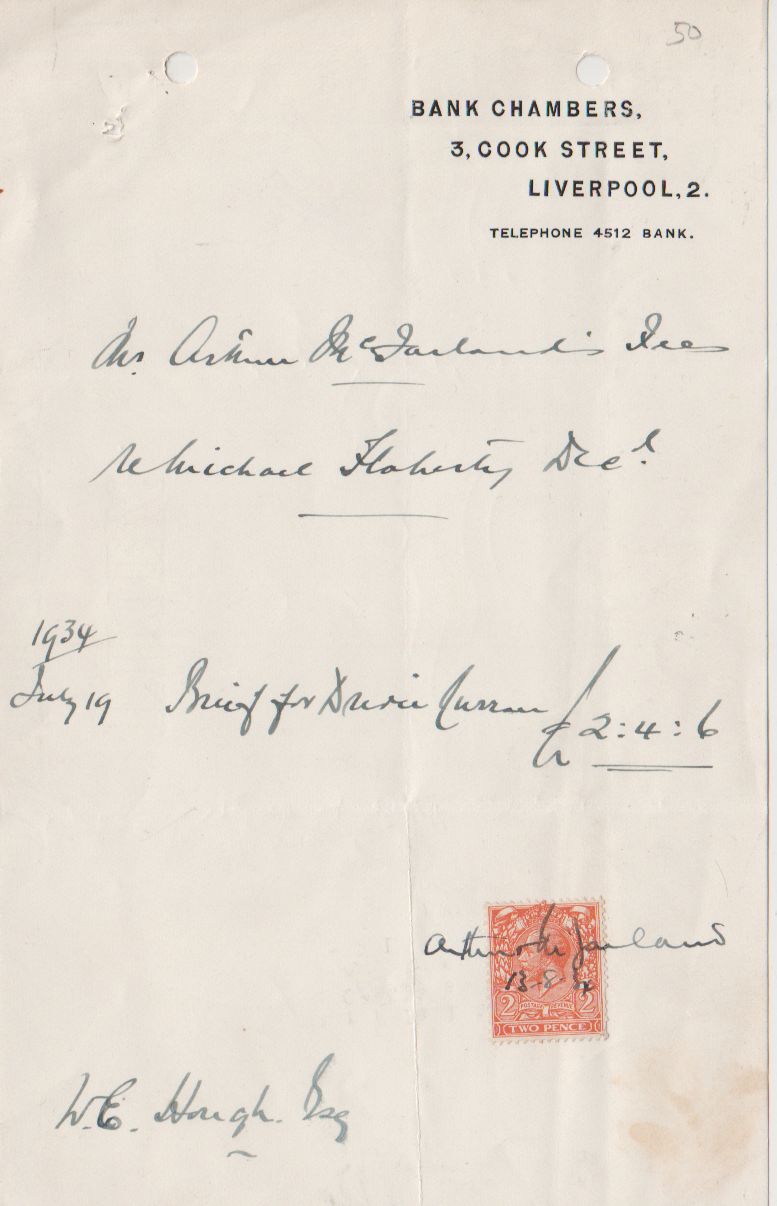 50
BANK CHAMBERS,
3, COOK STREET,
LIVERPOOL, 2.
TELEPHONE 4512 BANK.
Mr. Arthur McFarland's Fees
re Michael Flaherty Decd.
1934
July 19 Brief for Curran £2:4:6
Arthur McFarland
13-8-34
2 POSTAGE REVENUE 2
TWO PENCE
W.E. Hough. Esq